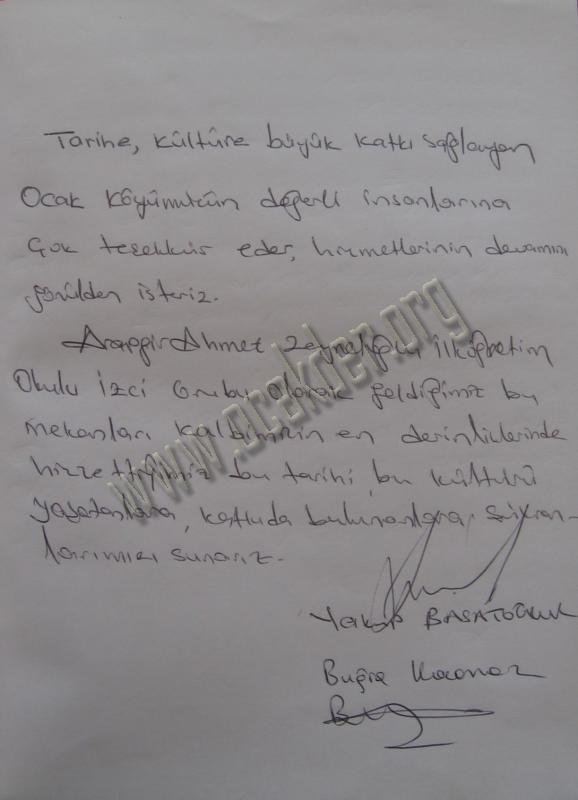 Tarihe, kültüre büyük katkı sağlayan
Ocak Köyümüzün değerli insanlarına
Çok teşekkür eder, hizmetlerinin devamını
gönülden isteriz.
Arapgir Ahmet Zeyneloğlu İlköğretim
Okulu İzci Grubu olarak geldiğimiz bu
mekanları kalbimizin en derinliklerinde
hissettiğimiz bu tarihi, bu kültürü
yaşatanlara, katkıda bulunanlara şükran-
larımızı sunarız.
Yakup
Buğra
www.ocakder.org